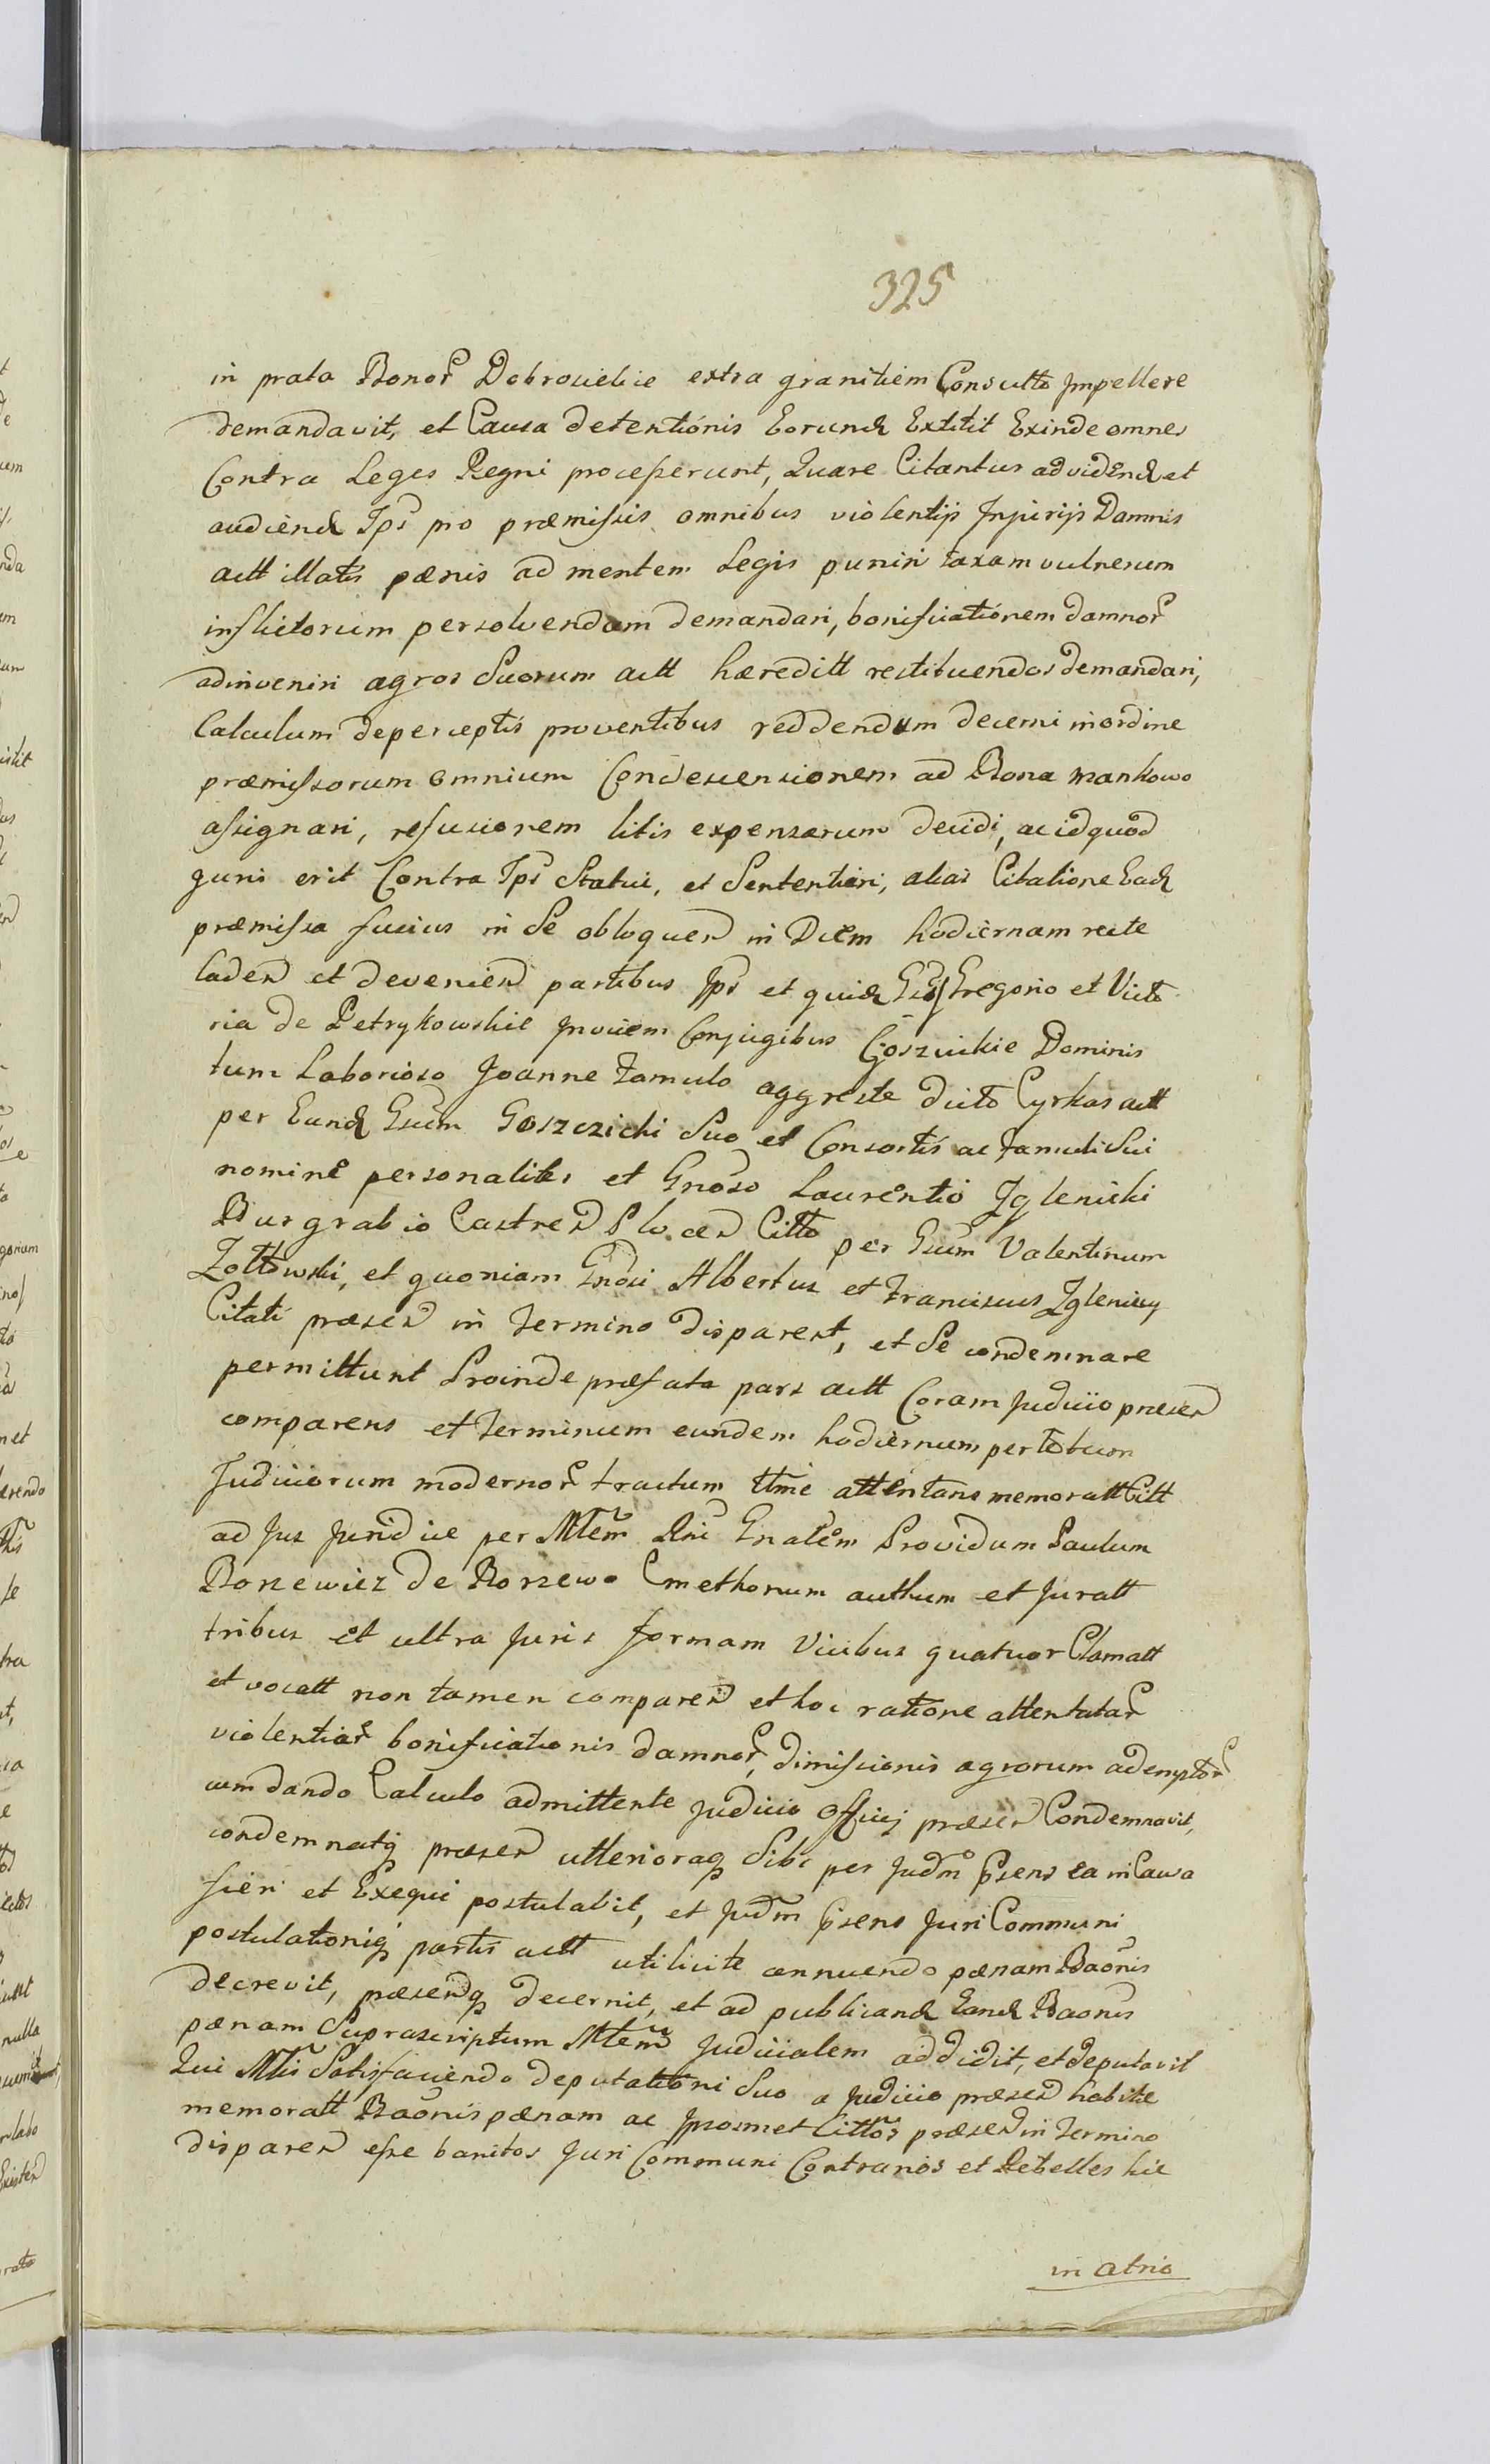 325
in prata Bonor Dobrosielice extra granitiem Consulto Impellere
demandavit, et Causa detentionis Eorund Extitit Exinde omnes
Contra Leges Regni processerunt, Quare Citantur ad vidend et
audiend Ips pro præmissis omnibus violentijs Injurijs Damnis
actt illatis pænis ad mentem Legis puniri taxam vulnerum
inflictorum persolvendam demandari, bonificationem damnor
adinveniri agros Suorum actt hæreditt restituendos demandari,
Calculum de perceptis proventibus reddendum decerni in ordine
præmissorum omnium Condescensionem ad Bona Mankowo
assignari, refusionem litis expensarum decidi, ac id quod
Juris erit Contra Ips Statui, et Sententiari, alias Citatione Ead
præmissa fusius in Se obloquen in Diem hodiernam recte
caden et devenien partibus Ips et quid Gsis Gregorio et Victo
ria de Petrykowskie Invicem Conjugibus Goszcickie Dominis
tum Laborioso Joanne famulo aggreste dicto Cyrkas actt
per Eund Gsum Goszczicki Suo et Consortis ac famuli Sui
nomine personaliter et Gnoso Laurentio Jglenicki
Burgrabio Castren Plocen Citto per Gsum Valentinum
Zoltowski, et quoniam Gnosi Albertus et Franciscus Jgleniccy
Citati præsen in Termino disparent, et Se condemnare
permittunt Proinde præfata pars actt Coram Judicio præsen
comparens et Terminum eundem hodiernum per totum
Judiciorum modernor tractum ttme attentans memoratt Citt
ad Jus Juridice per Mtem Rni Gnalem Providum Paulum
Borzewicz de Borzewo Cmethonum authum et Juratt
tribus et ultra Juris formam Vicibus quatuor Clamatt
et vocatt non tamen comparen et hoc ratione attentatar
violentiar bonificationis damnor, dimissionis agrorum ademptor
cum dando Calculo admittente Judicio Officij præsen Condemnavit,
condemnatq præsen ulterioraq Sibi per Judm Psens ea in Causa
fieri et Exequi postulabit, et Judm Psens Juri Communi
postulationiq partis actt utilicite annuendo pænam Baonis
decrevit, præsenq decernit, et ad publicand Eand Baonis
pænam Suprascriptum Mtem Judicialem addidit, et deputavit
Qui Mtis Satisfaciendo deputationi Suo a Judicio præsen habitæ
memoratt Baonis pænam ac Ipsosmet Cittos præsen in Termino
disparen esse banitos Juri Communi Contrarios et Rebelles hic
in atrio